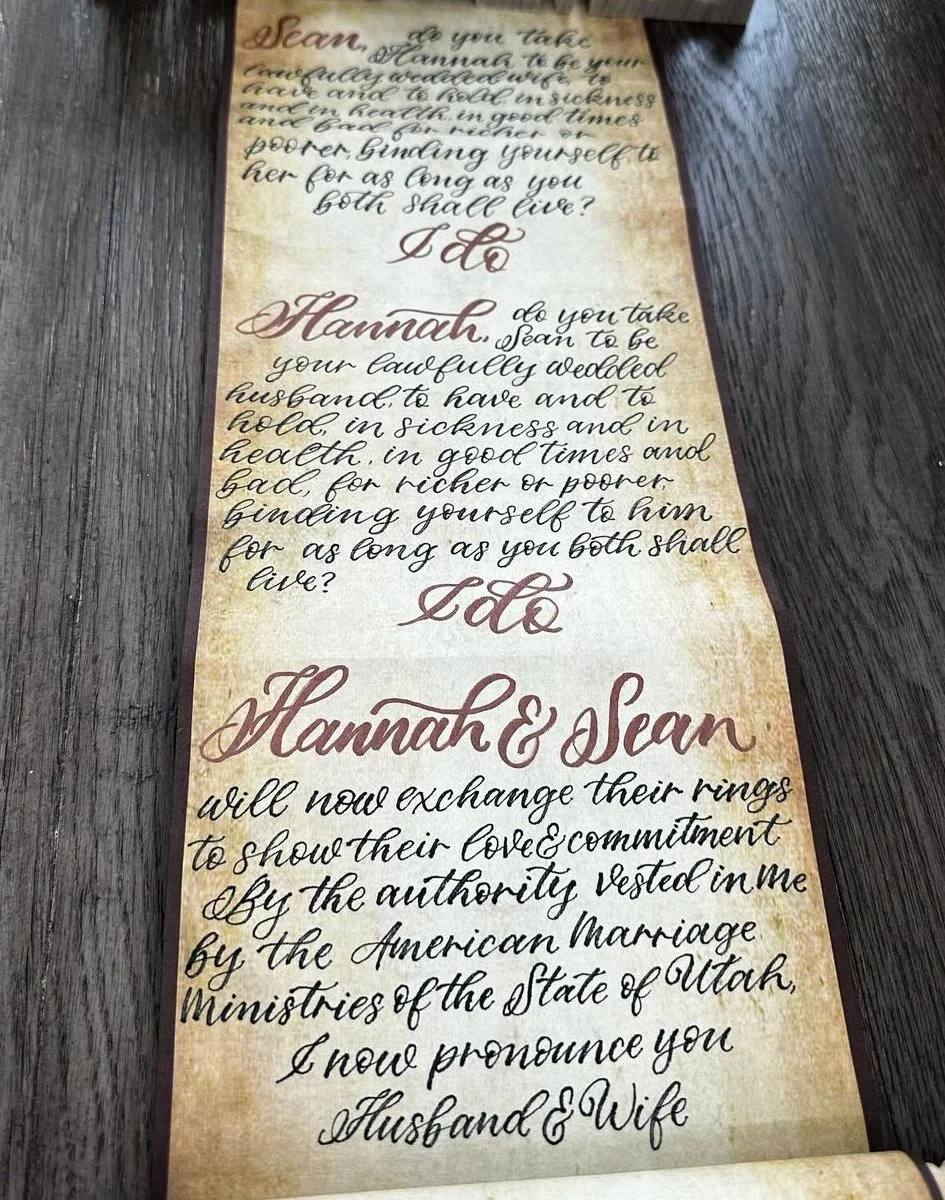 Sean, do you take
Hannah to be your
lawfully wedded wife, to
have and to hold, in sickness
and in health, in good times
and bad, for richer or
poorer, binding yourself to
her for as long as you
both shall live?
I do
Hannah, do you take
Sean to be
your lawfully wedded
husband, to have and to
hold, in sickness and in
health, in good times and
bad, for richer or poorer,
binding yourself to him
for as long as you both shall
live?
I do
Hannah & Sean
will now exchange their rings
to show their love & commitment
By the authority vested in me
by the American Marriage
Ministries of the State of Utah,
I now pronounce you
Husband & Wife